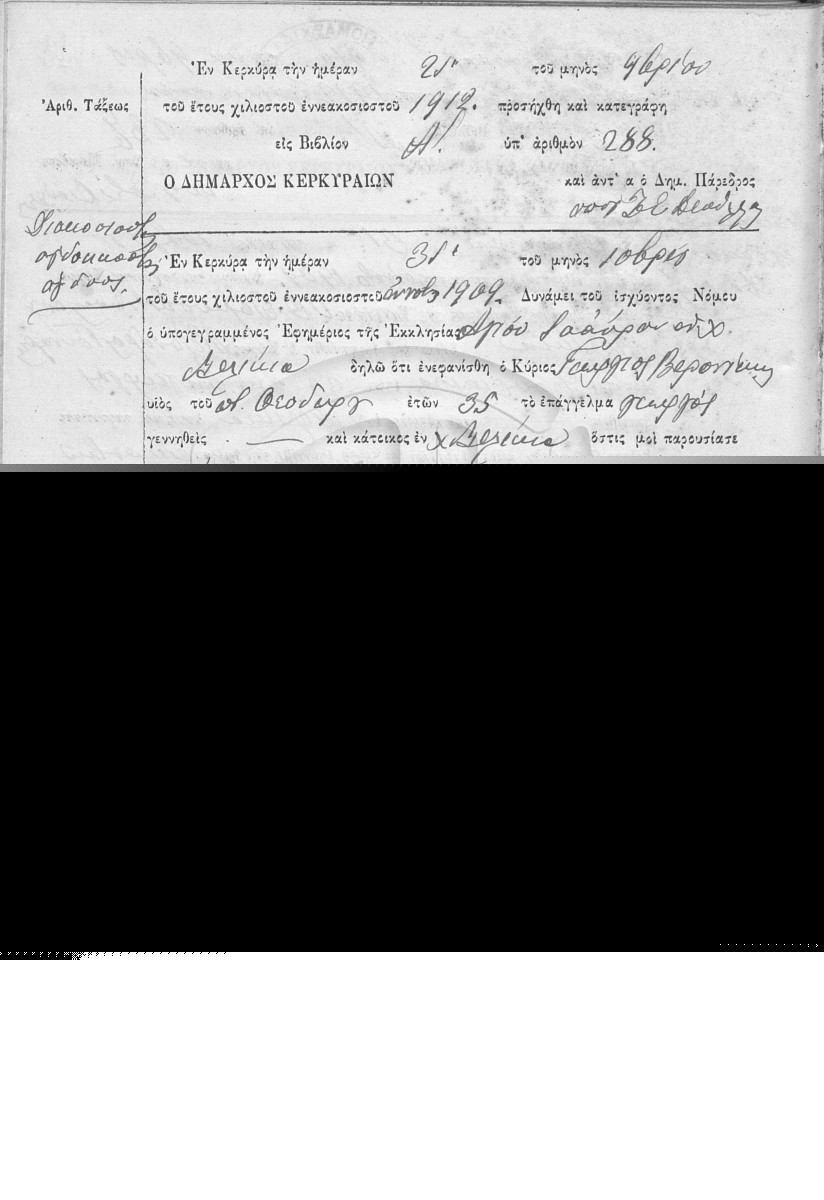 Ἐν Κερκύρᾳ τὴν ἡμέραν 21ῃ τοῦ μηνὸς 9βρίου
Ἀριθ. Τάξεως τοῦ ἔτους χιλιοστοῦ ἐννεακοσιοστοῦ 1912. προσήχθη καὶ κατεγράφη
εἰς Βιβλίον Α'. ὑπ' ἀριθμὸν 288.
Ο ΔΗΜΑΡΧΟΣ ΚΕΡΚΥΡΑΙΩΝ καὶ ἀντ' α ὁ Δημ. Πάρεδρος
Διακοσιοστὸν
ογδοηκοστὸν
ογδοον.
Ἐν Κερκύρᾳ τὴν ἡμέραν 31ῃ τοῦ μηνὸς 10βρίου
τοῦ ἔτους χιλιοστοῦ ἐννεακοσιοστοῦ 1909. Δυνάμει τοῦ ἰσχύοντος Νόμου
ὁ ὑπογεγραμμένος Ἐφημέριος τῆς Ἐκκλησίας Αγίου
δηλῶ ὅτι ἐνεφανίσθη ὁ Κύριος Γεώργιος
υἱὸς τοῦ π. Θεοδώρου ἐτῶν 35 τὸ ἐπάγγελμα γεωργός
γεννηθεὶς — καὶ κάτοικος ἐν ὅστις μοὶ παρουσίασε